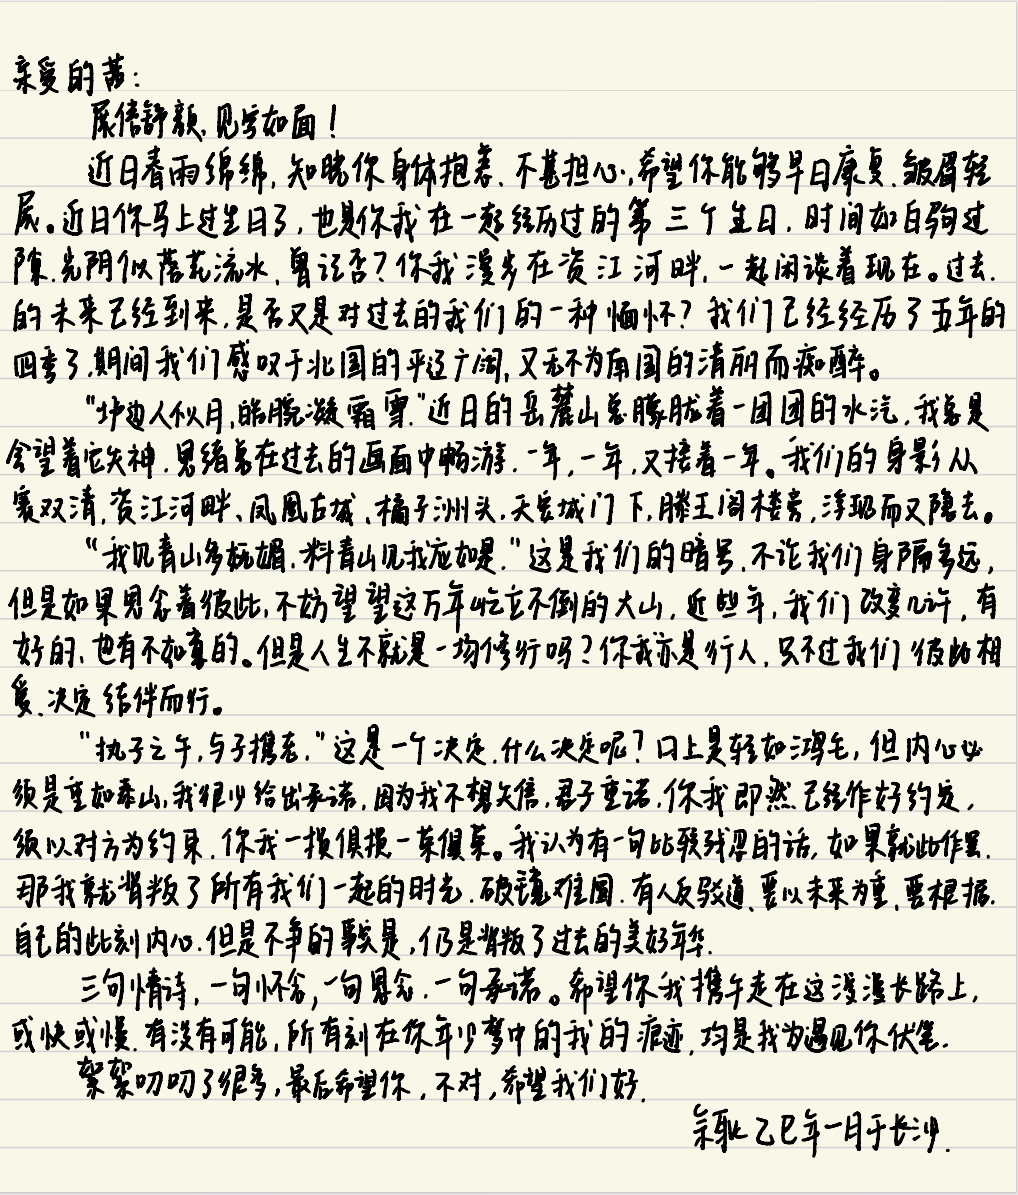 亲爱的茜:
展信舒颜,见字如面!
近日春雨绵绵,知晓你身体抱恙,不甚担心,希望你能够早日康复,皱眉轻
展。近日你马上过生日了,也是你我在一起经历过的第三个生日,时间如白驹过
隙,光阴似落花流水,曾记否?你我漫步在资江河畔,一起闲谈着现在。过去,
的未来已经到来,是否又是对过去的我们的一种缅怀?我们已经经历了五年的
四季了,期间我们感叹于北国的平辽广阔,又无不为南国的清丽而痴醉。
"垆边人似月,皓腕凝霜雪."近日的岳麓山总朦胧着一团团的水汽,我总是
会望着它失神,思绪总在过去的画面中畅游,一年,一年,又接着一年。我们的身影从
襄双清,资江河畔、凤凰古城、橘子洲头,天安城门下,滕王阁楼旁,浮现而又隐去。
"我见青山多妩媚,料青山见我应如是."这是我们的暗号,不论我们身隔多远,
但是如果思念着彼此,不妨望望这万年屹立不倒的大山,近些年,我们改变几许,有
好的,也有不如意的。但是人生不就是一均修行吗?你我亦是行人,只不过我们彼此相
爱,决定结伴而行。
"执子之手,与子携老."这是一个决定,什么决定呢?口上是轻如鸿毛,但内心必
须是重如泰山,我很少给出承诺,因为我不想失信,君子重诺,你我即然已经作好约定,
须以对方为约束,你我一损俱损一荣俱荣。我认为有一句比较残忍的话,如果就此作罢,
那我就背叛了所有我们一起的时光,破镜难圆,有人反驳道,要以未来为重,要根据
自己的此刻内心,但是不争的事实是,仍是背叛了过去的美好年华.
三句情诗,一句怀念,一句思念,一句承诺。希望你我携手走在这漫漫长路上,
或快或慢,有没有可能,所有刻在你年少梦中的我的痕迹,均是我为遇见你伏笔.
絮絮叨叨了很多,最后希望你,不对,希望我们好.
乙巳年一月于长沙.